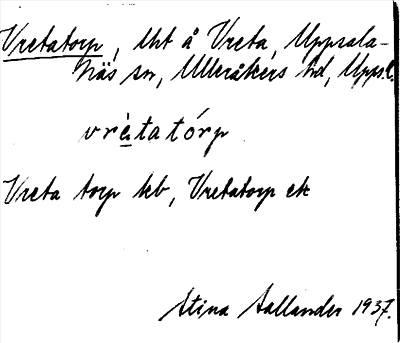 Vretatorp, lht å Vreta, Uppsala-
Näs sn, Ulleråkers hd, Upps.l.
vrètatórp
Vreta torp kb, Vretatorp ek
Stina Sallander 1937.